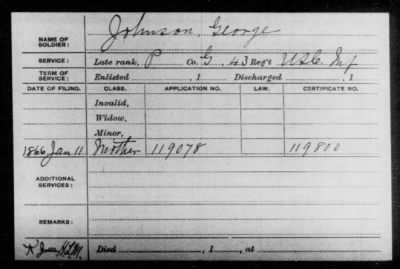 NAME OF SOLDIER: Johnson, George
SERVICE: Late rank, P Co. G, 43 Reg't U.S.C. Inf
TERM OF SERVICE: Enlisted , 1 Discharged , 1
DATE OF FILING. CLASS. APPLICATION NO. LAW. CERTIFICATE NO.
Invalid,
Widow,
Minor,
1866 Jan 11 Mother 119078 119800
ADDITIONAL SERVICES:
REMARKS:
Died , 1 , at